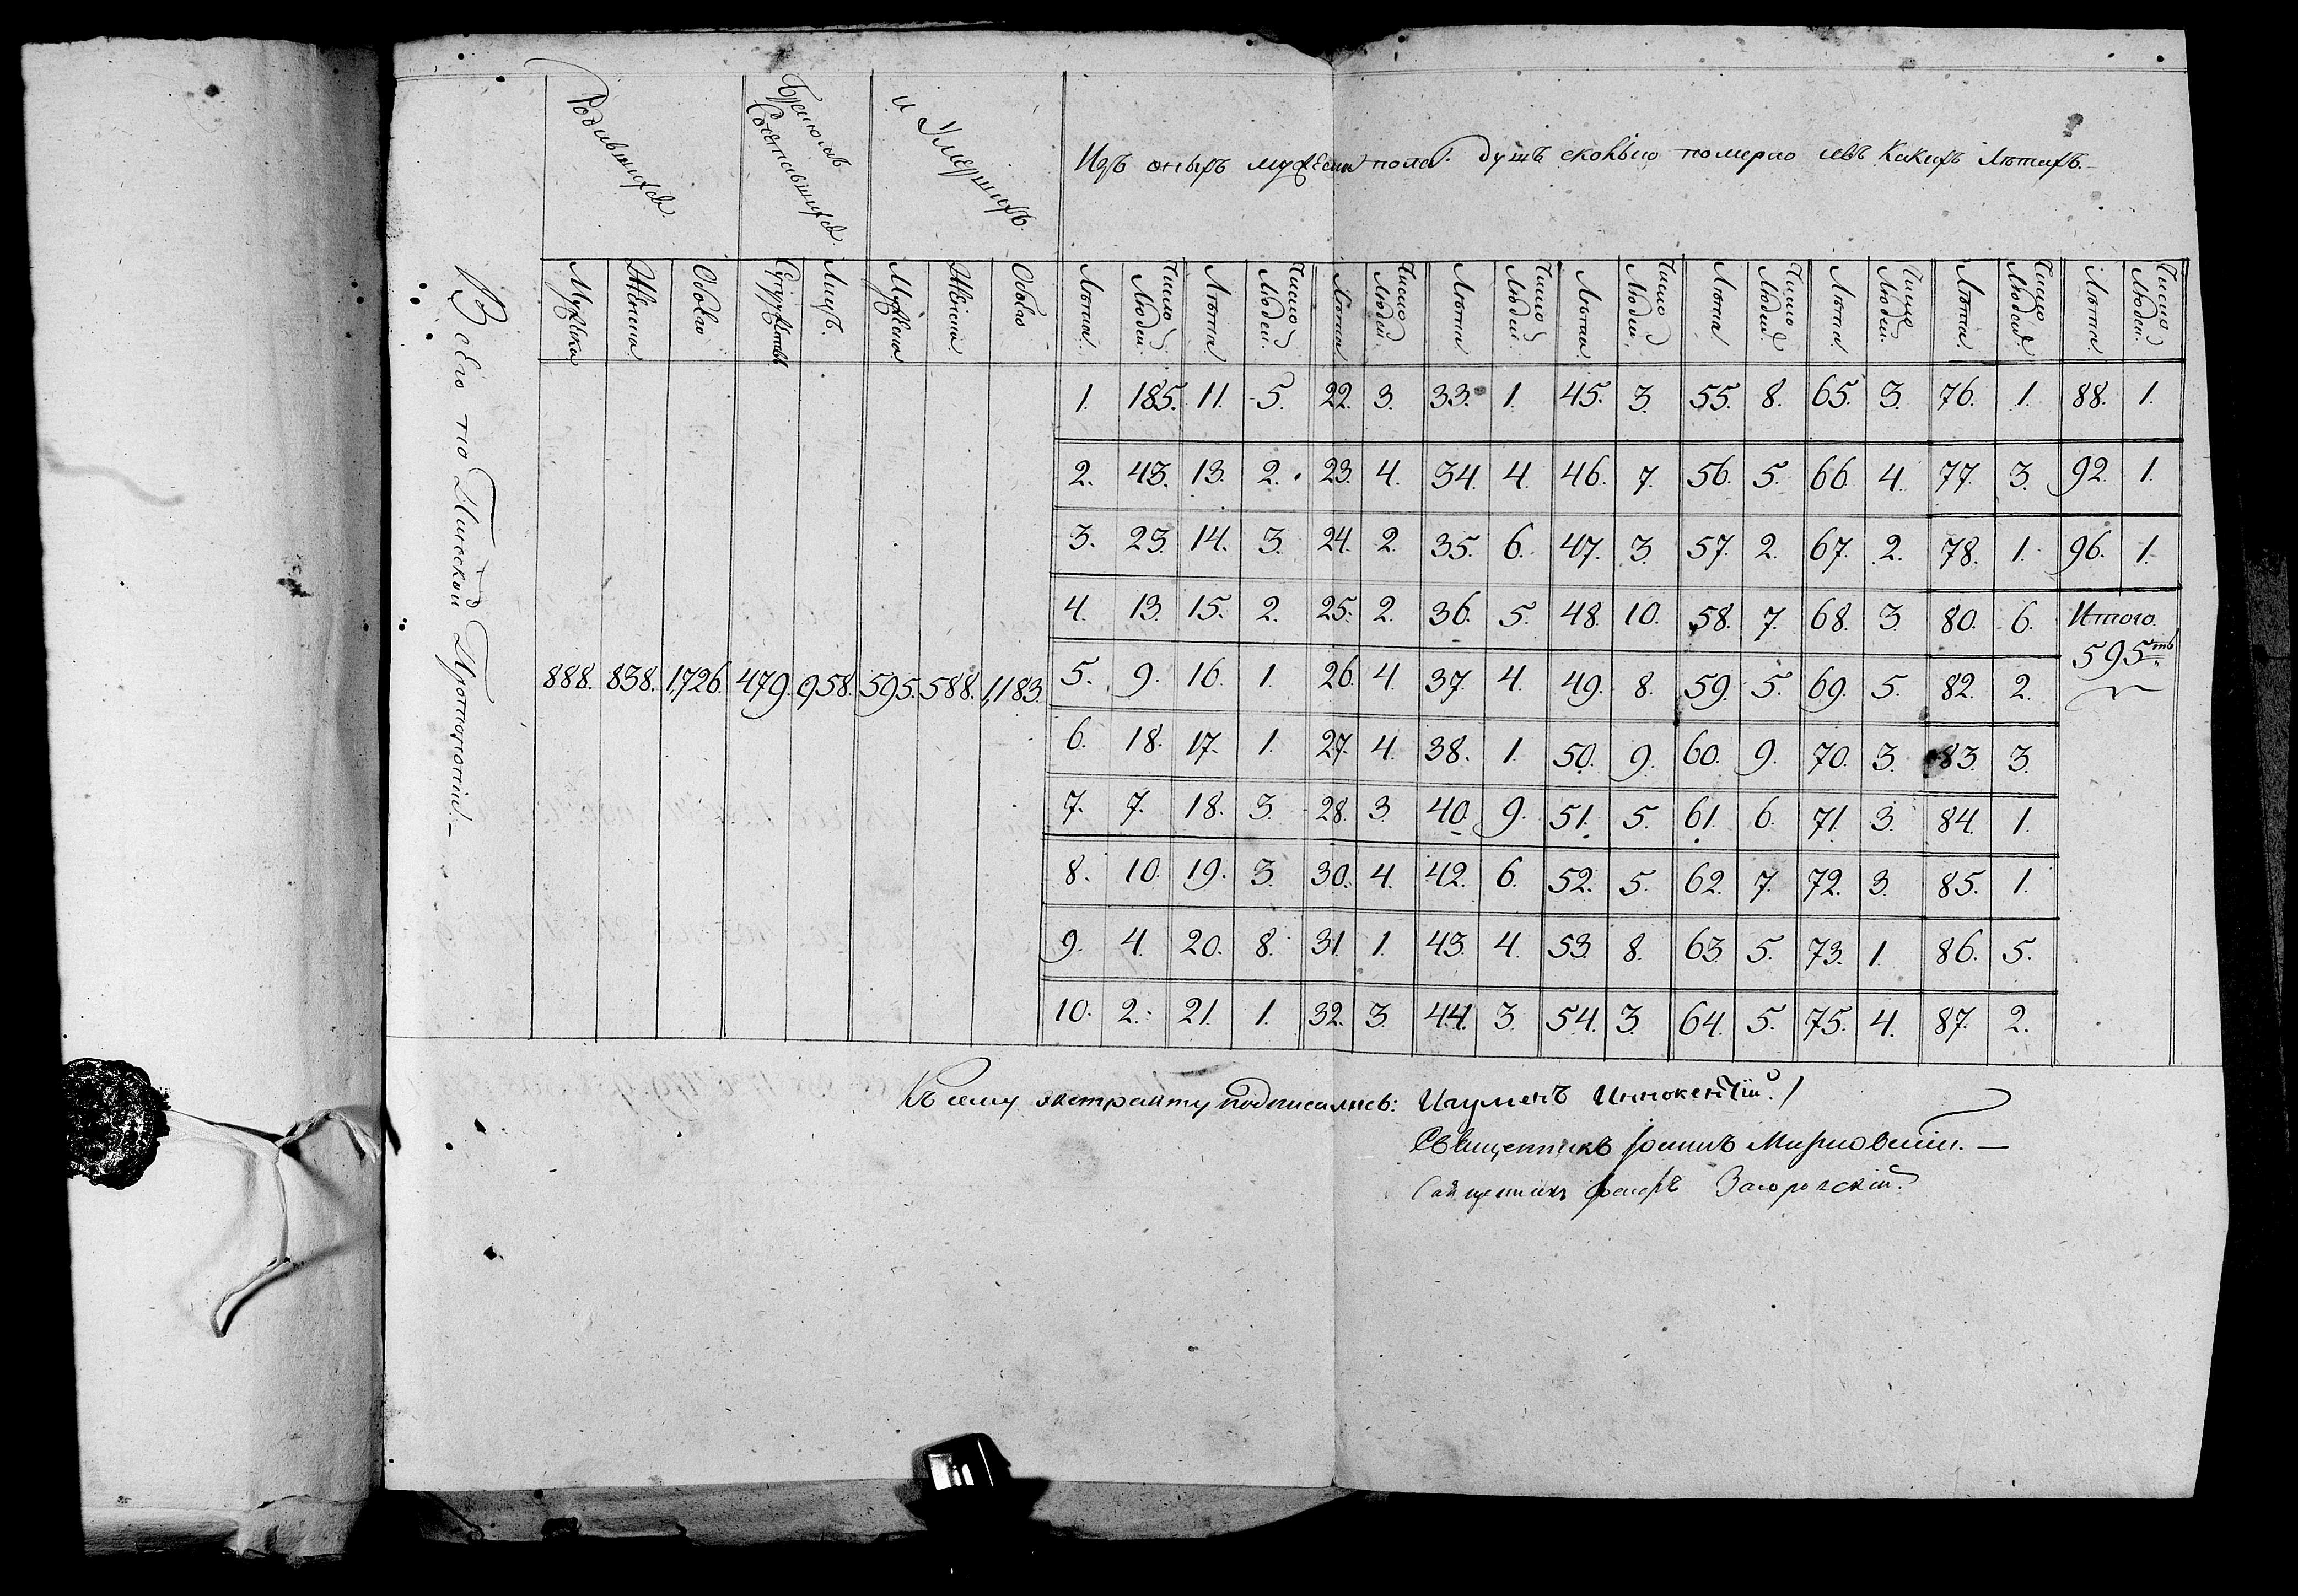 Родившихся
Бракомъ Сочетавшихся
и Умершихъ
Изъ оныхъ мужеска пола душъ сколько померло и въ какихъ лѣтахъ.
Мужеска Женска Обоего Супружествъ Лицъ. Мужеска Женска Обоего Лѣта. Число Людей. Лѣта. Число Людей. Лѣта Число Людей. Лѣта Число Людей. Лѣта. Число Людей. Лѣта Число Людей. Лѣта. Число Людей. Лѣта. Число Людей. Лѣта. Число Людей.
Всего по Пинской Протопопіи.
888. 838. 1,726. 479. 958. 595. 588. 1,183.
1. 185. 11. 5. 22. 3. 33. 1. 45. 3. 55. 8. 65. 3. 76. 1. 88. 1.
2. 43. 13. 2. 23. 4. 34. 4. 46. 7. 56. 5. 66. 4. 77. 3. 92. 1.
3. 23. 14. 3. 24. 2. 35. 6. 47. 3. 57. 2. 67. 2. 78. 1. 96. 1.
4. 13. 15. 2. 25. 2. 36. 5. 48. 10. 58. 7. 68. 3. 80. 6. Итого.
5. 9. 16. 1. 26. 4. 37. 4. 49. 8. 59. 5. 69. 5. 82. 2. 595ть
6. 18. 17. 1. 27. 4. 38. 1. 50. 9. 60. 9. 70. 3. 83. 3.
7. 7. 18. 3. 28. 3. 40. 9. 51. 5. 61. 6. 71. 3. 84. 1.
8. 10. 19. 3. 30. 4. 42. 6. 52. 5. 62. 7. 72. 3. 85. 1.
9. 4. 20. 8. 31. 1. 43. 4. 53. 8. 63. 5. 73. 1. 86. 5.
10. 2. 21. 1. 32. 3. 44. 3. 54. 3. 64. 5. 75. 4. 87. 2.
Къ сему экстракту подписались: Игуменъ Иннокентій.
Священникъ Іоаннъ
Священникъ Загоровскій.